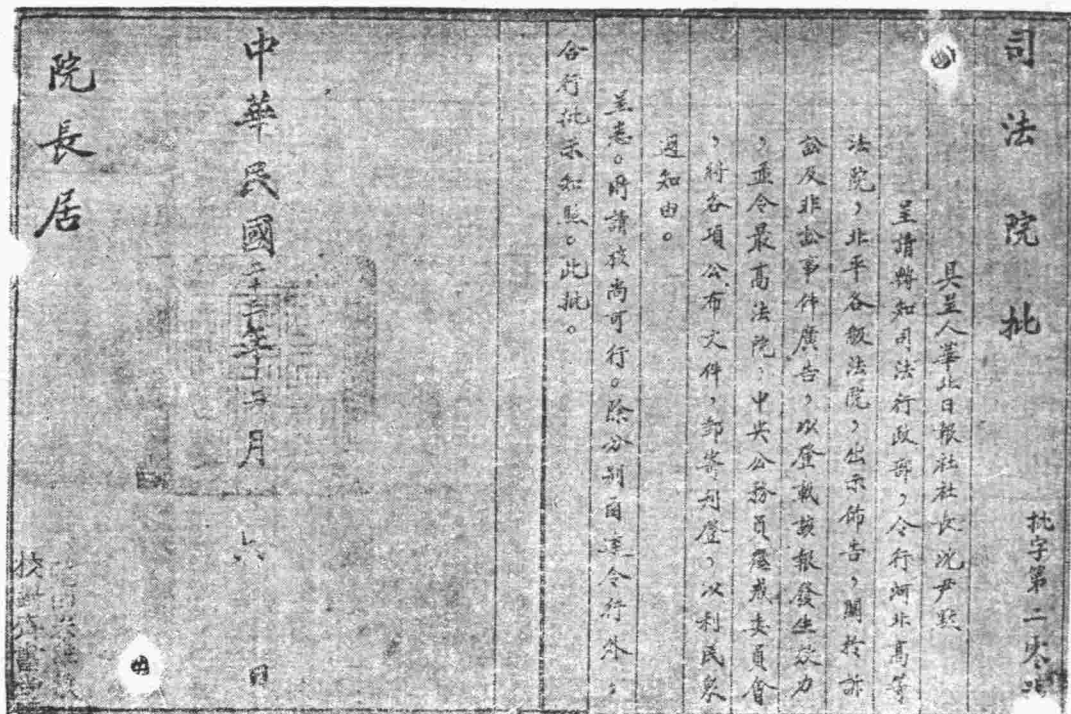 司法院批
批字第二零
具呈人華北日報社社長沈尹默
呈請轉知司法行政部，令行河北高等
法院，北平各級法院，出示佈告，關於訴
訟及非訟事件廣告，以登載該報發生效力
，並令最高法院，中央公務員懲戒委員會
，將各項公布文件，郵寄刊登，以利民衆
週知由。
呈悉。所請核尚可行。除分別函達令行外，
合行批示知照。此批。
中華民國二十二年十二月六日
院長居